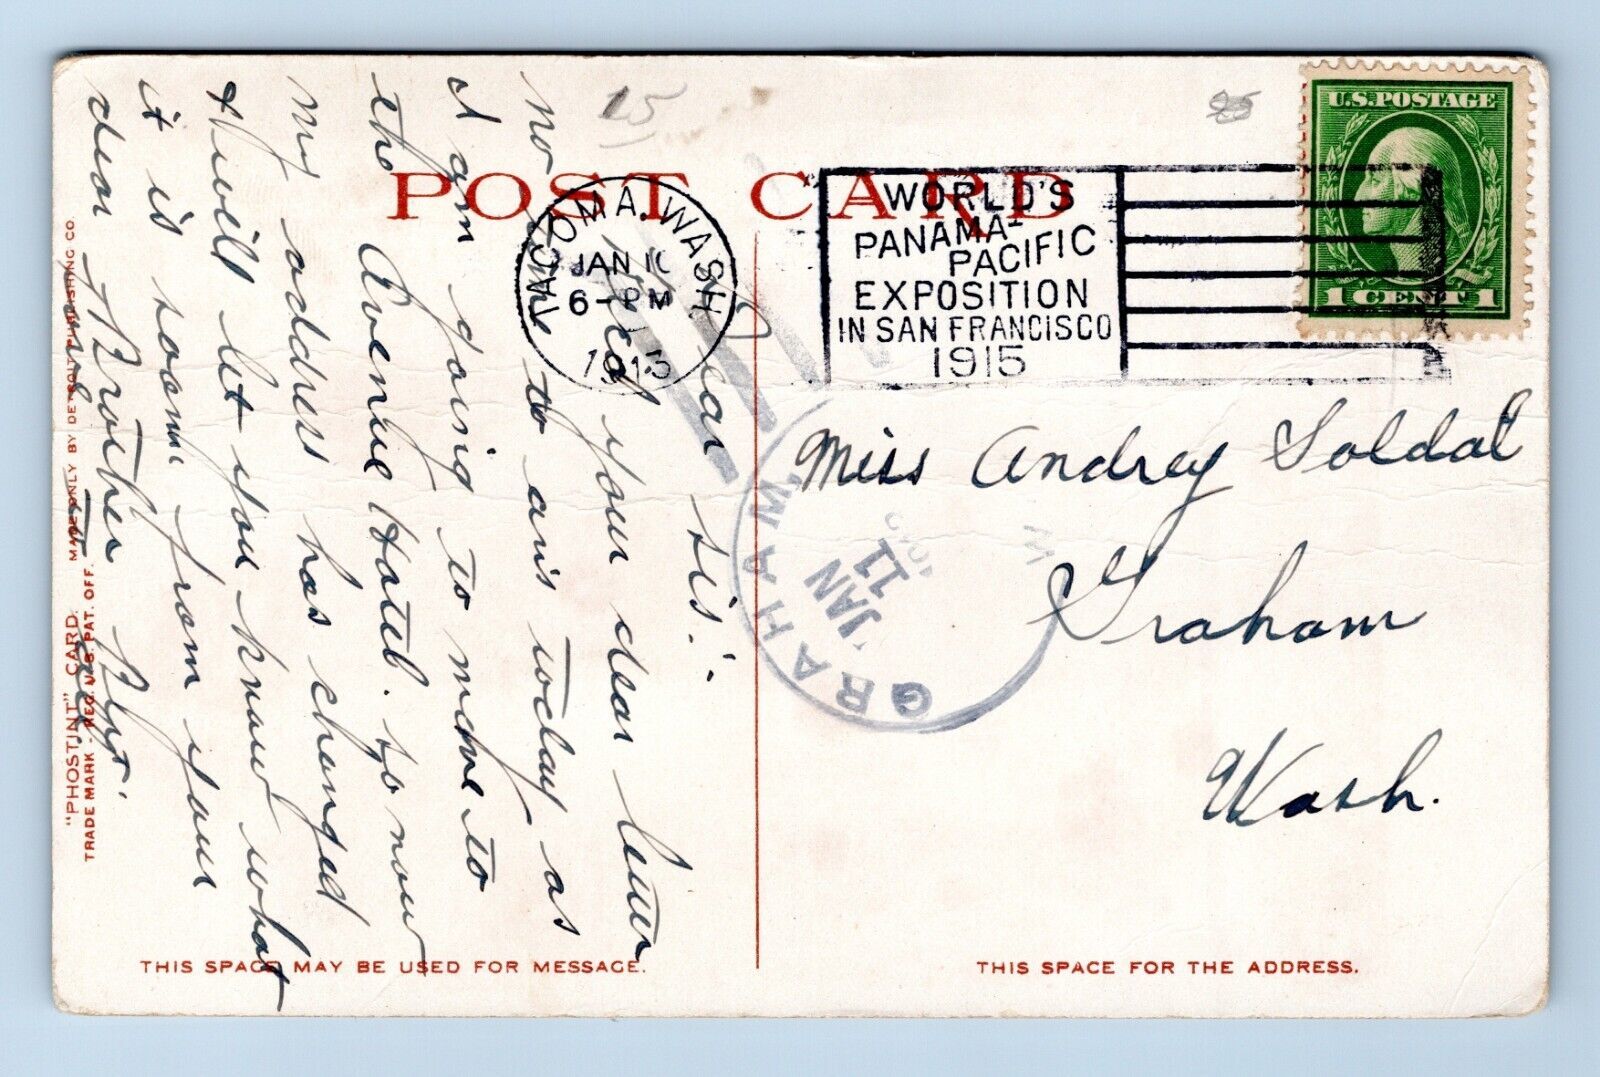 POST CARD
TACOMA. WASH
JAN 10
6 - PM
1913
WORLD'S
PANAMA-
PACIFIC
EXPOSITION
IN SAN FRANCISCO
1915
U.S. POSTAGE
1 CENT 1
25
Dear sis.
Recd your dear letter
no time to ans today as
I am going to move to
the Avenue Hotel. so now
my address has changed
& I will let you know what
it is soon from your
dear Brother
Miss Audrey Soldal
Graham
Wash.
GRAHAM, W
JAN
11
"PHOSTINT" CARD. MADE ONLY BY DETROIT PUBLISHING CO.
TRADE MARK - REG. U.S. PAT. OFF.
THIS SPACE MAY BE USED FOR MESSAGE.
THIS SPACE FOR THE ADDRESS.